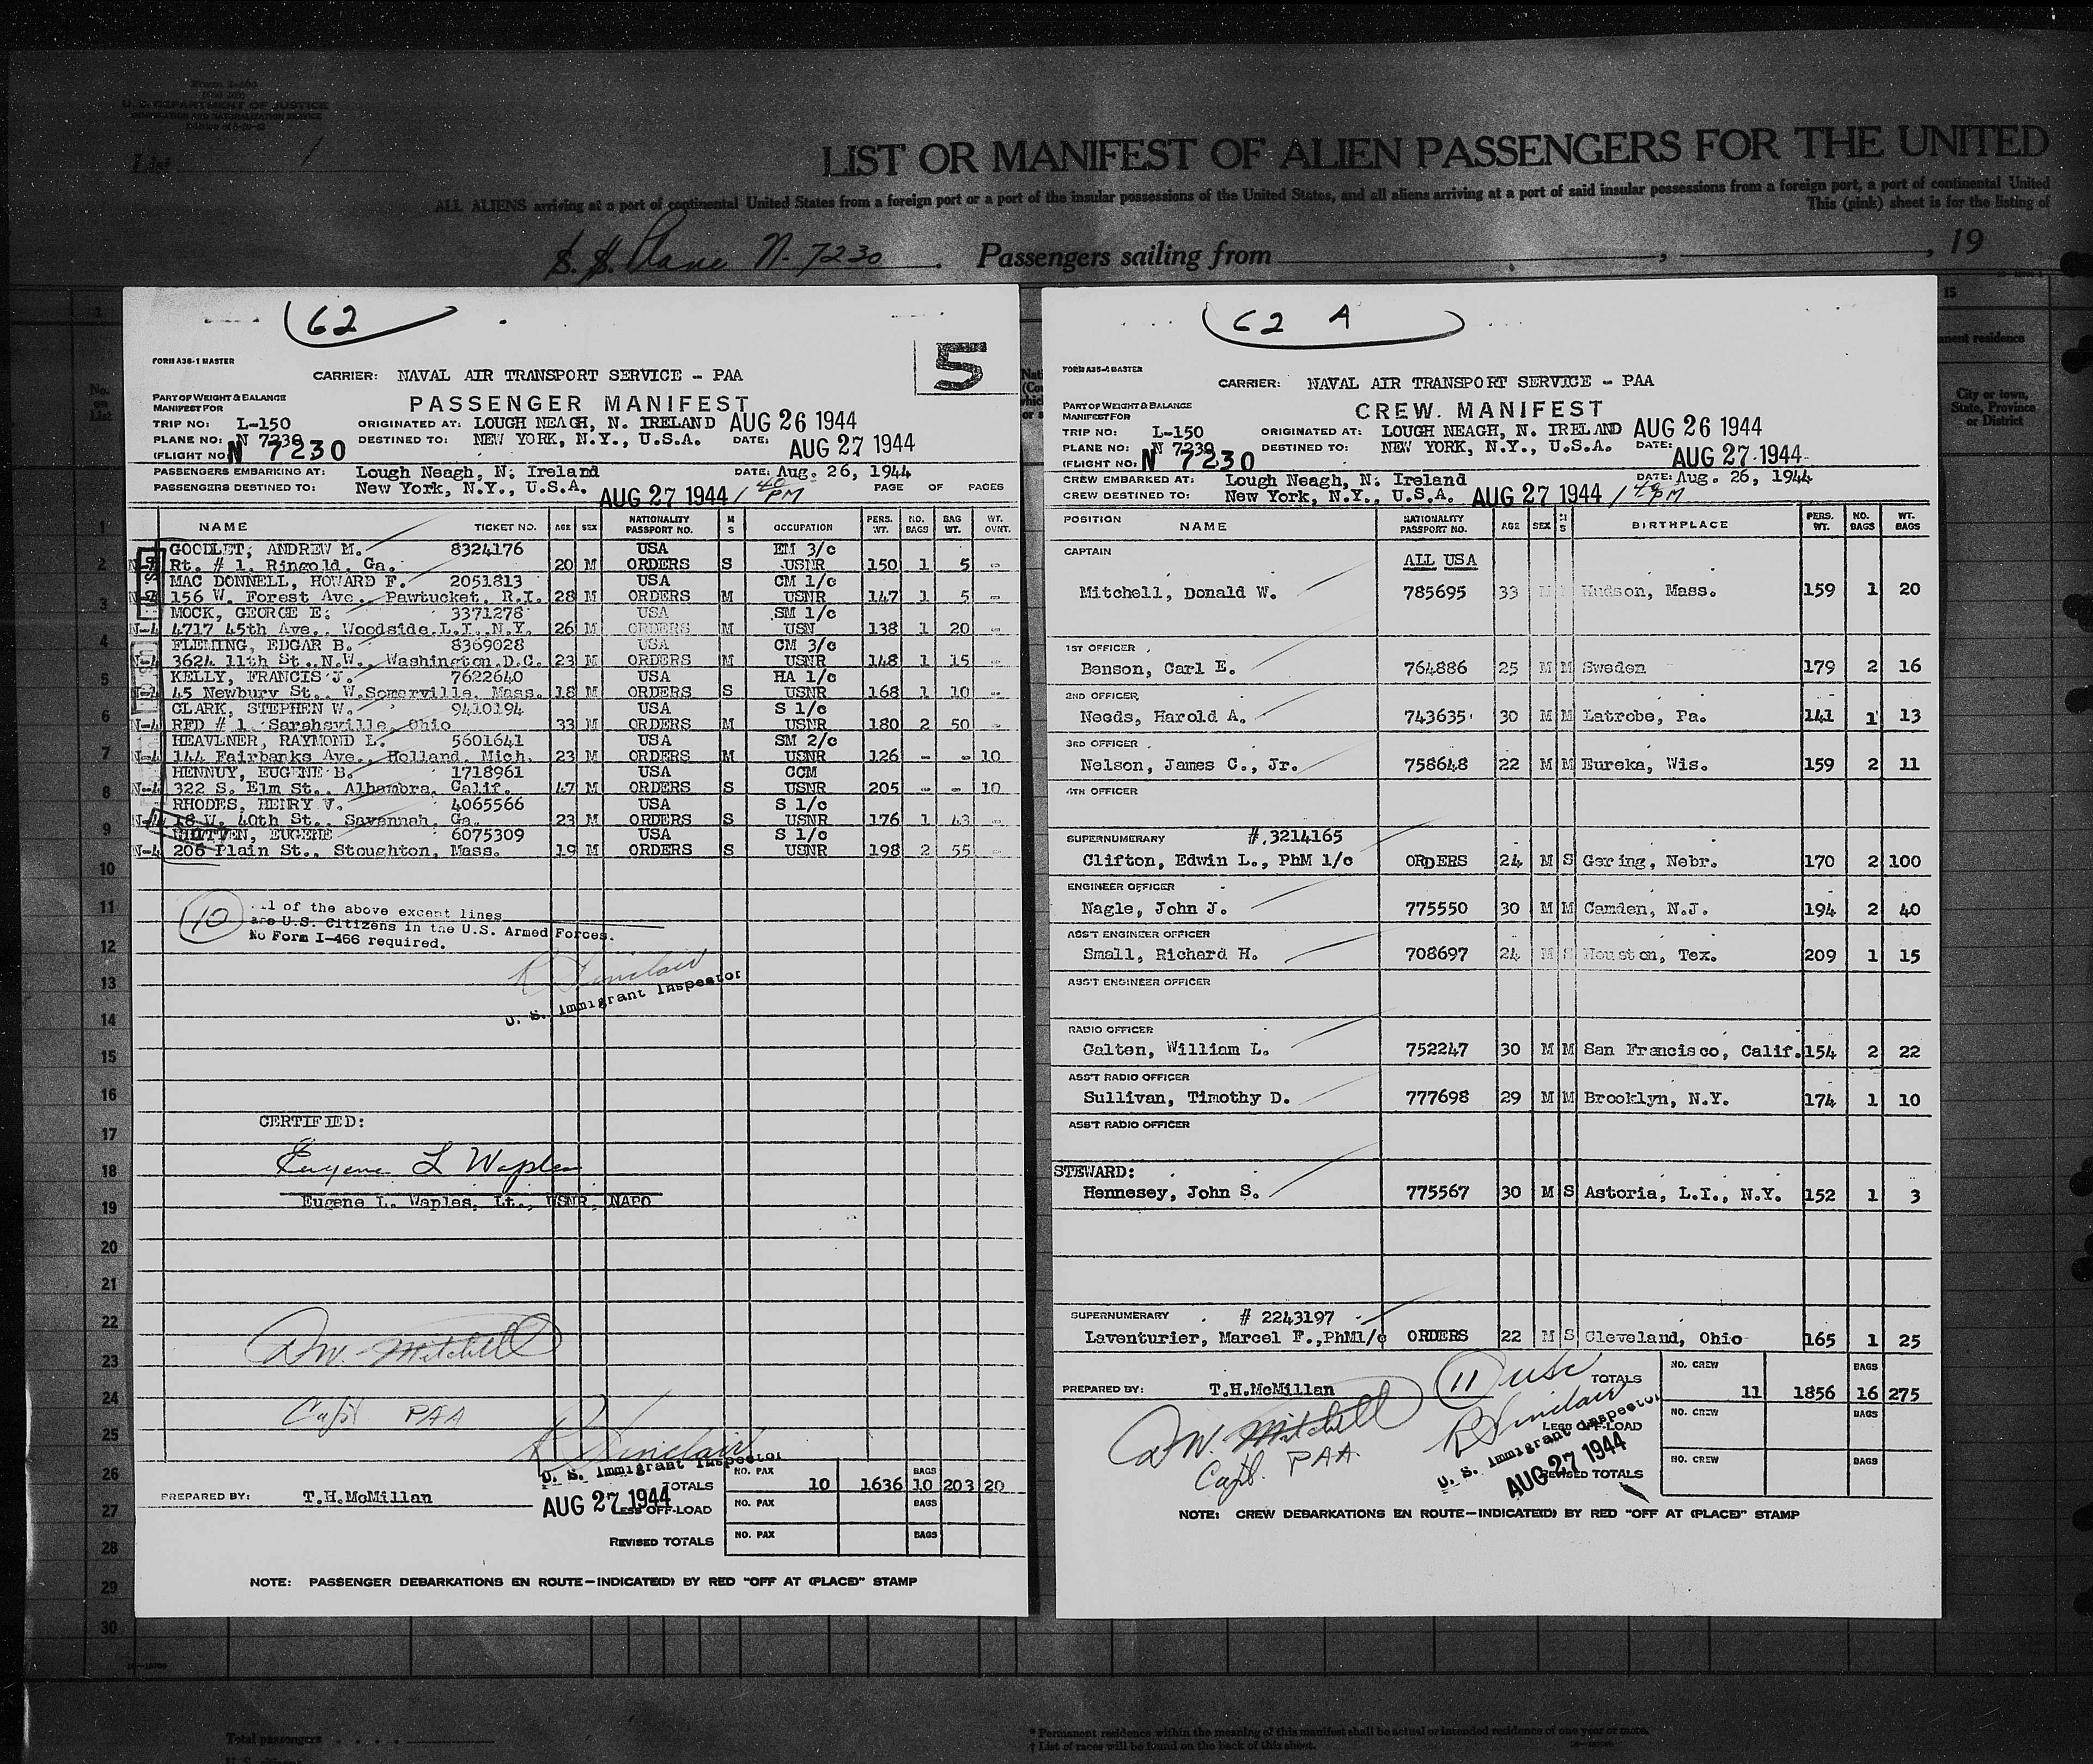 U. S. DEPARTMENT OF JUSTICE
IMMIGRATION AND NATURALIZATION SERVICE
List 1
LIST OR MANIFEST OF ALIEN PASSENGERS FOR THE UNITED
ALL ALIENS arriving at a port of continental United States from a foreign port or a port of the insular possessions of the United States, and all aliens arriving at a port of said insular possessions from a foreign port, a port of continental United
This (pink) sheet is for the listing of
S. S. Plane N. 7230 . Passengers sailing from , , 19
62
FORM A35-1 MASTER
5
CARRIER: NAVAL AIR TRANSPORT SERVICE - PAA
PART OF WEIGHT & BALANCE
MANIFEST FOR
PASSENGER MANIFEST
TRIP NO: L-150 ORIGINATED AT: LOUGH NEAGH, N. IRELAND AUG 26 1944
PLANE NO: N 7230 DESTINED TO: NEW YORK, N.Y., U.S.A. DATE: AUG 27 1944
(FLIGHT NO. N 7230
PASSENGERS EMBARKING AT: Lough Neagh, N. Ireland DATE: Aug. 26, 1944
PASSENGERS DESTINED TO: New York, N.Y., U.S.A. AUG 27 1944 / 1 40 PM PAGE OF PAGES
NAME TICKET NO. AGE SEX NATIONALITY PASSPORT NO. M S OCCUPATION PERS. WT. NO. BAGS BAG WT. WT. OVNT.
GOODLET, ANDREW M. 8324176 USA EM 3/c
Rt. # 1, Ringold, Ga. 20 M ORDERS S USNR 150 1 5 -
MAC DONNELL, HOWARD F. 2051813 USA CM 1/c
156 W. Forest Ave., Pawtucket, R.I. 28 M ORDERS M USNR 147 1 5 -
MOCK, GEORGE E. 3371278 USA SM 1/c
N-4 4717 45th Ave., Woodside,L.I.,N.Y. 26 M ORDERS M USN 138 1 20 -
FLEMING, EDGAR B. 8369028 USA CM 3/c
N-4 3624 11th St.,N.W., Washington,D.C. 23 M ORDERS M USNR 148 1 15 -
KELLY, FRANCIS J. 7622640 USA HA 1/c
N-4 45 Newbury St., W.Somerville, Mass. 18 M ORDERS S USNR 168 1 10 -
CLARK, STEPHEN W. 9410194 USA S 1/c
N-4 RFD # 1, Sarahsville, Ohio 33 M ORDERS M USNR 180 2 50 -
HEAVLNER, RAYMOND L. 5601641 USA SM 2/c
N-4 144 Fairbanks Ave., Holland, Mich. 23 M ORDERS M USNR 126 - - 10
HENNUY, EUGENE B. 1718961 USA CCM
N-4 322 S. Elm St., Alhambra, Calif. 47 M ORDERS S USNR 205 - - 10
RHODES, HENRY V. 4065566 USA S 1/c
N-4 18 W. 40th St., Savannah, Ga. 23 M ORDERS S USNR 176 1 43 -
EUGENE 6075309 USA S 1/c
N-4 206 Plain St., Stoughton, Mass. 19 M ORDERS S USNR 198 2 55 -
10 All of the above except lines
are U.S. Citizens in the U.S. Armed Forces.
No Form I-466 required.
R Sinclair
U. S. Immigrant Inspector
CERTIFIED:
Eugene L Waples
Eugene L. Waples, Lt., USNR, NAPO
D.W. Mitchell
Capt PAA
R Sinclair
U. S. Immigrant Inspector
TOTALS NO. PAX 10 1636 BAGS 10 203 20
PREPARED BY: T.H.McMillan
AUG 27 1944
LESS OFF-LOAD NO. PAX BAGS
REVISED TOTALS NO. PAX BAGS
NOTE: PASSENGER DEBARKATIONS EN ROUTE-INDICATE(D) BY RED "OFF AT (PLACE)" STAMP
62 A
FORM A35-4 MASTER
CARRIER: NAVAL AIR TRANSPORT SERVICE - PAA
PART OF WEIGHT & BALANCE
MANIFEST FOR
CREW. MANIFEST
TRIP NO: L-150 ORIGINATED AT: LOUGH NEAGH, N. IRELAND AUG 26 1944
PLANE NO: N 7230 DESTINED TO: NEW YORK, N.Y., U.S.A. DATE: AUG 27 1944
(FLIGHT NO. N 7230
CREW EMBARKED AT: Lough Neagh, N. Ireland DATE: Aug. 26, 1944
CREW DESTINED TO: New York, N.Y., U.S.A. AUG 27 1944 / 1 40 PM
POSITION NAME NATIONALITY PASSPORT NO. AGE SEX M S BIRTHPLACE PERS. WT. NO. BAGS WT. BAGS
CAPTAIN ALL USA
Mitchell, Donald W. 785695 33 M M Hudson, Mass. 159 1 20
1ST OFFICER
Benson, Carl E. 764886 25 M M Sweden 179 2 16
2ND OFFICER
Needs, Harold A. 743635 30 M M Latrobe, Pa. 141 1 13
3RD OFFICER
Nelson, James C., Jr. 758648 22 M M Eureka, Wis. 159 2 11
4TH OFFICER
SUPERNUMERARY #.3214165
Clifton, Edwin L., PhM 1/c ORDERS 24 M S Gering, Nebr. 170 2 100
ENGINEER OFFICER
Nagle, John J. 775550 30 M M Camden, N.J. 194 2 40
ASS'T ENGINEER OFFICER
Small, Richard H. 708697 24 M S Houston, Tex. 209 1 15
ASS'T ENGINEER OFFICER
RADIO OFFICER
Galten, William L. 752247 30 M M San Francisco, Calif. 154 2 22
ASS'T RADIO OFFICER
Sullivan, Timothy D. 777698 29 M M Brooklyn, N.Y. 174 1 10
ASS'T RADIO OFFICER
STEWARD:
Hennesey, John S. 775567 30 M S Astoria, L.I., N.Y. 152 1 3
SUPERNUMERARY # 2243197
Laventurier, Marcel F.,PhM1/c ORDERS 22 M S Cleveland, Ohio 165 1 25
PREPARED BY: T.H.McMillan 11 USC TOTALS NO. CREW 11 1856 BAGS 16 275
D.W. Mitchell
Capt. PAA
R Sinclair
U. S. Immigrant Inspector
AUG 27 1944
LESS OFF-LOAD NO. CREW BAGS
REVISED TOTALS NO. CREW BAGS
NOTE: CREW DEBARKATIONS EN ROUTE-INDICATE(D) BY RED "OFF AT (PLACE)" STAMP
15
City or town,
State, Province
or District
1
2
3
4
5
6
7
8
9
10
11
12
13
14
15
16
17
18
19
20
21
22
23
24
25
26
27
28
29
30
Total passengers
* Permanent residence within the meaning of this manifest shall be actual or intended residence of one year or more.
† List of races will be found on the back of this sheet.